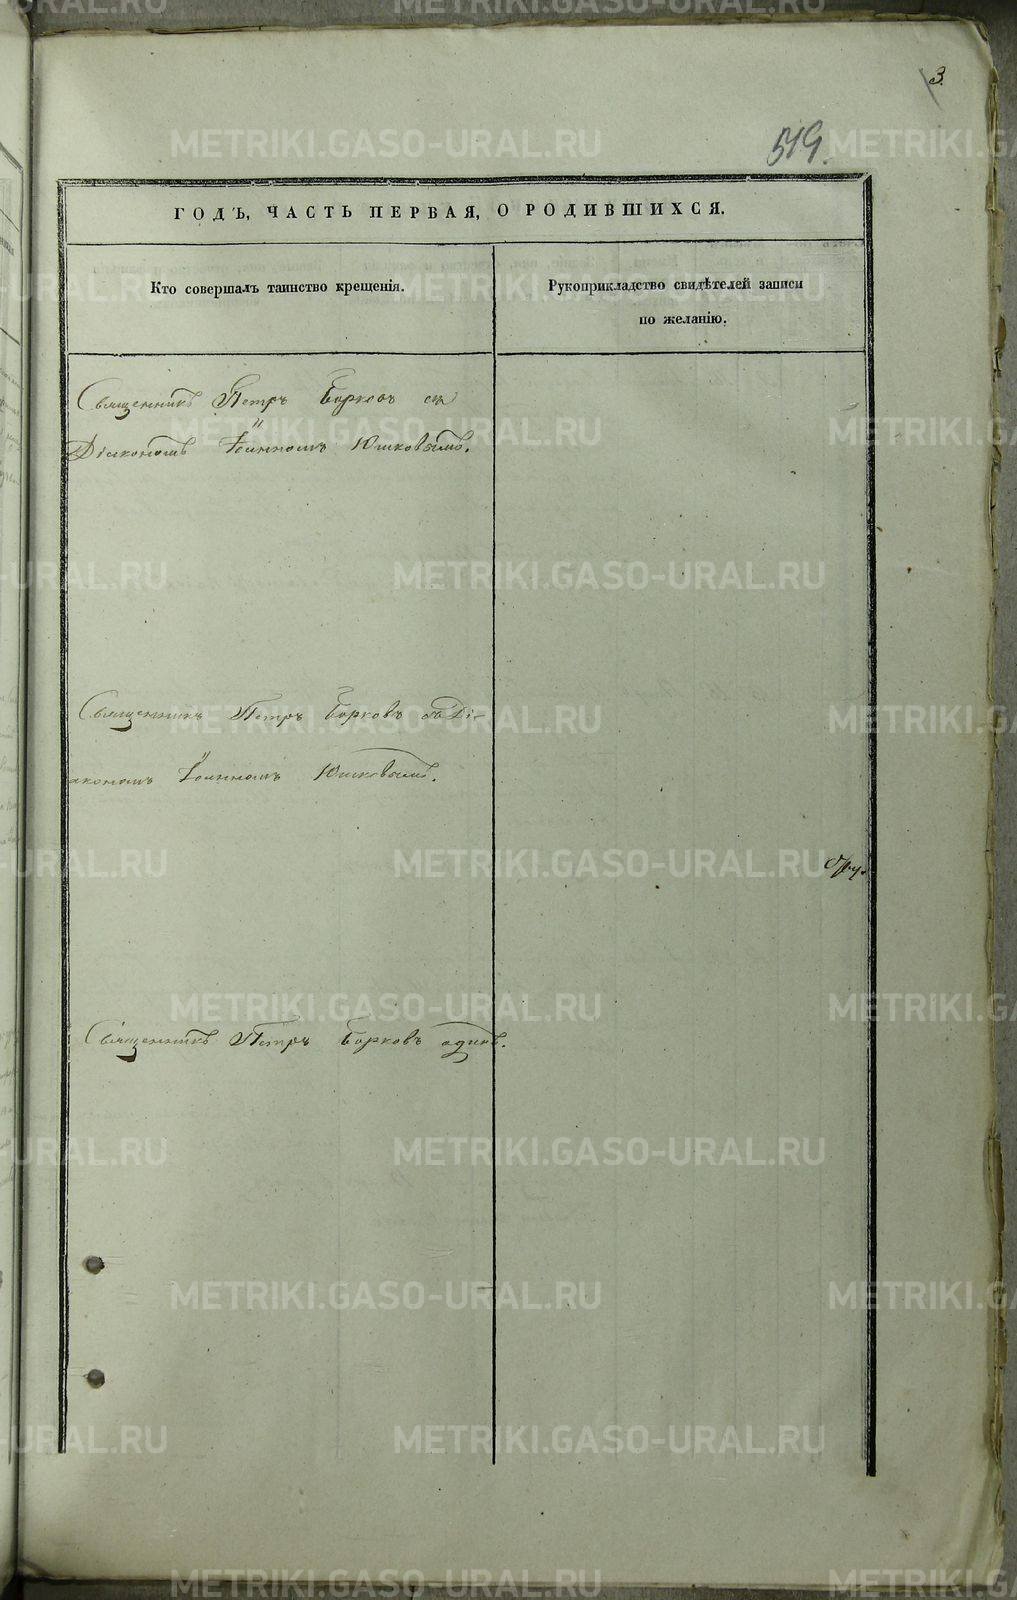 3.
519.
ГОДЪ, ЧАСТЬ ПЕРВАЯ, О РОДИВШИХСЯ.
Кто совершалъ таинство крещенія.
Рукоприкладство свидѣтелей записи
по желанію.
Священникъ Петръ Борковъ съ
Діакономъ Іоанномъ Юшковымъ.
Священникъ Петръ Борковъ съ Ді-
акономъ Іоанномъ Юшковымъ.
Священникъ Петръ Борковъ одинъ.
METRIKI.GASO-URAL.RU